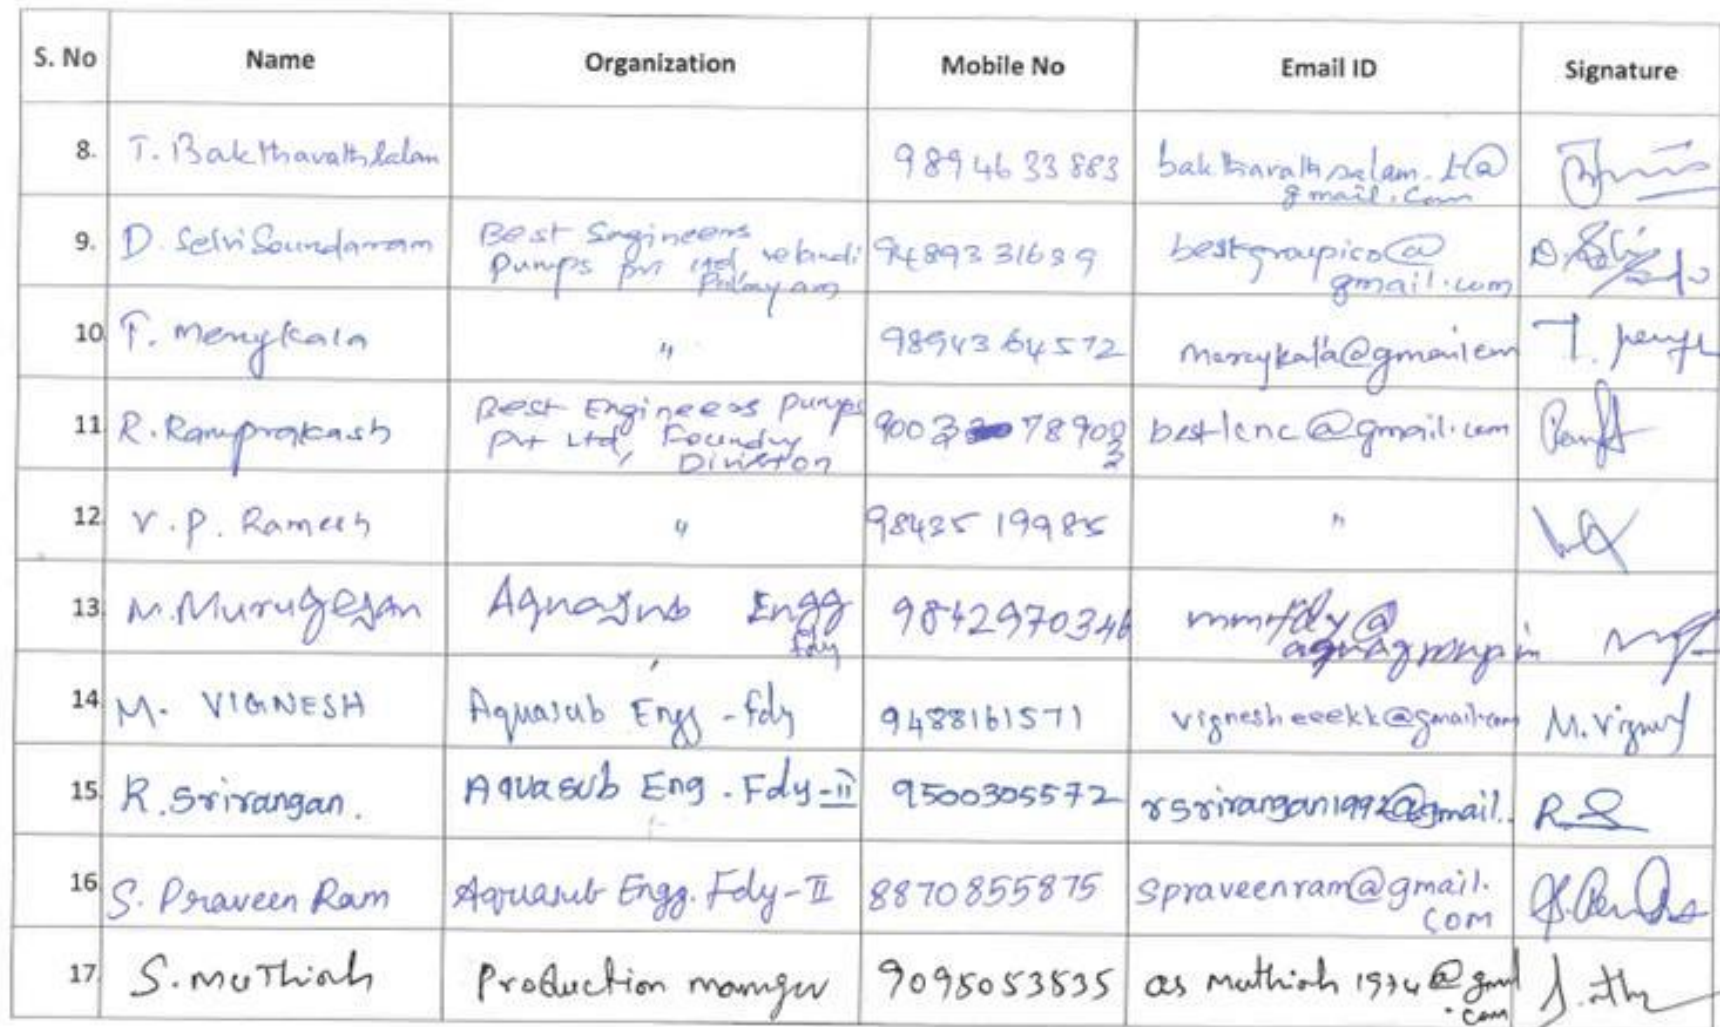 S. No Name Organization Mobile No Email ID Signature
8. T. Bakthavathsalam 9894633883 bakthavathsalam.t@
gmail.com
9. D. SelviSoundarram Best Engineers 9489331639 bestgroupico@
Pumps pvt Ltd gmail.com
Palayam
10. T. " 9894364572 mercykala@gmail.com
11. R. Ramprakash Best Engineers Pumps 9003 78902 @gmail.com
Pvt Ltd, Foundry 3
Division
12. V.P. Ramesh " 98435 19985 "
13. M. Murugesan Aquasub Engg 9842970346 mmrfdy@
fdy aquagroup.in
14. M. VIGNESH Aquasub Engg - fdy 9488161571 vignesheeekk@gmail.com M. Vignesh
15. R. Srirangan. Aquasub Eng. Fdy-II 9500305572 rsrirangan1992@gmail. R.S
16. S. Praveen Ram Aquasub Engg. Fdy-II 8870855875 spraveenram@gmail.
com
17. S. Muthiah Production manager 9095053535 as muthiah 1974@gmail
.com